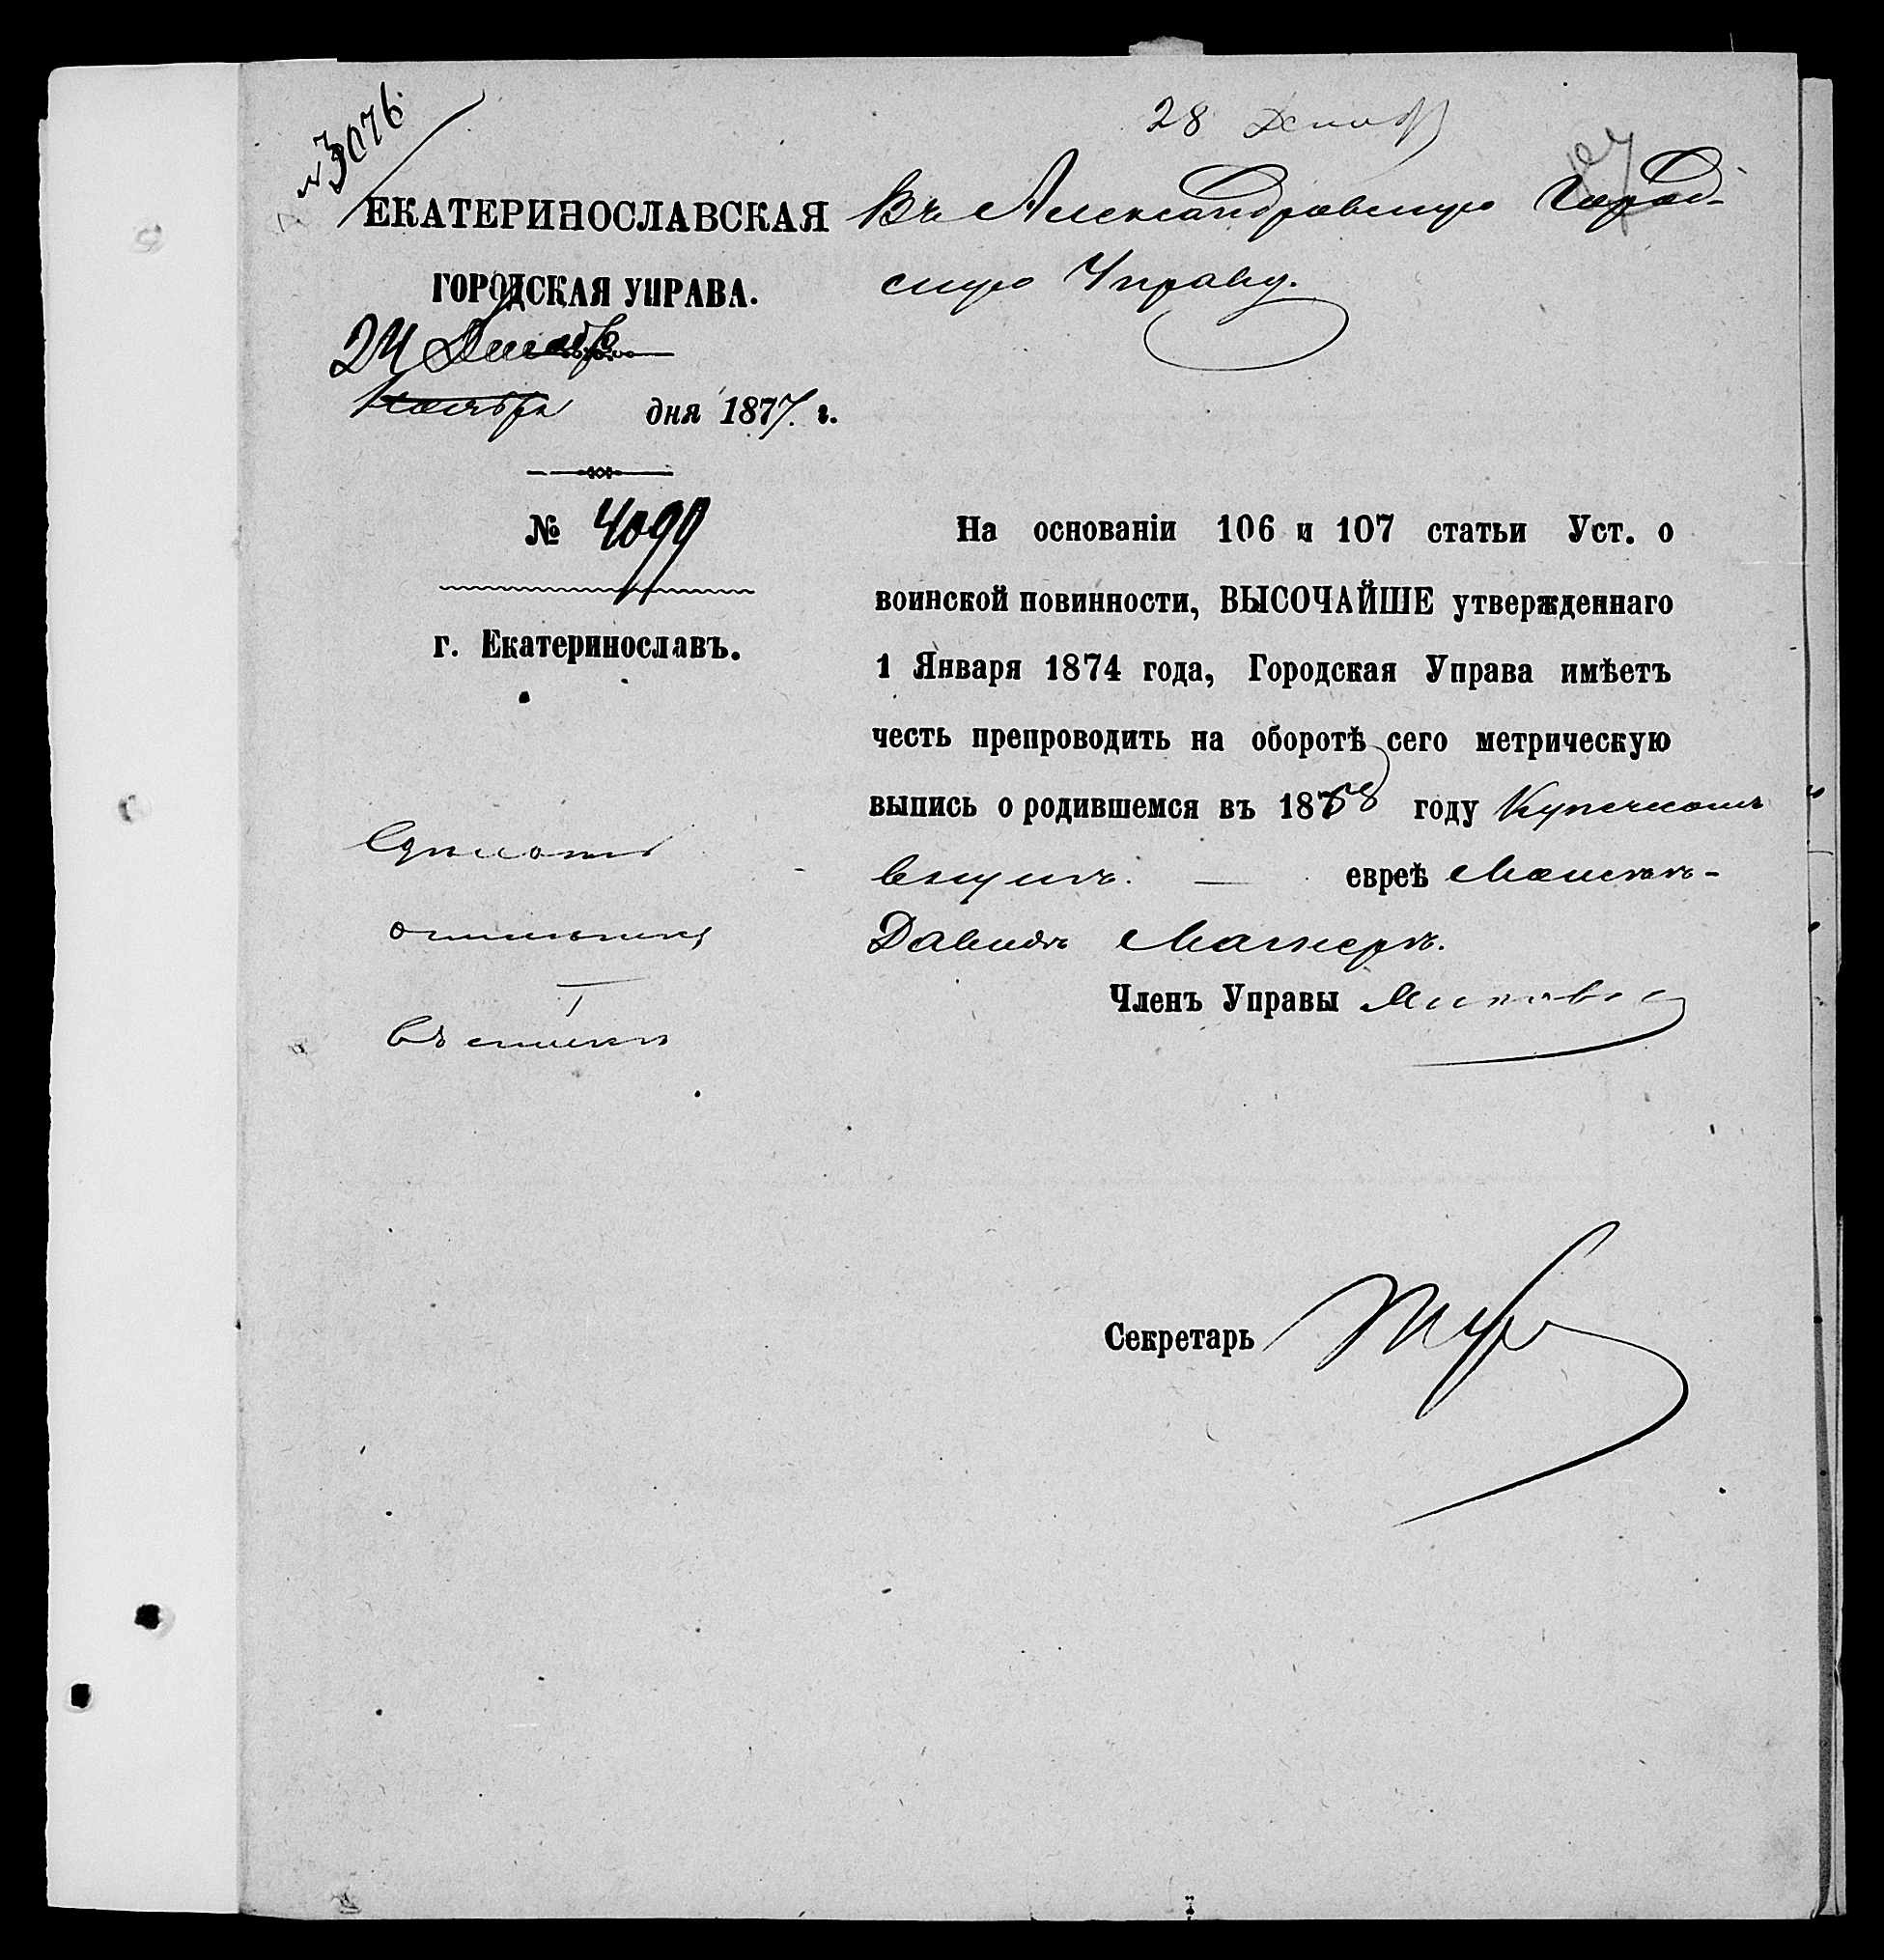 № 3076.
28 Декабр
87
ЕКАТЕРИНОСЛАВСКАЯ
ГОРОДСКАЯ УПРАВА.
24 Декабр
Ноября дня 1877. г.
№ 4099
г. Екатеринославъ.
Въ Александровскую Город-
скую Управу.
На основаніи 106 и 107 статьи Уст. о
воинской повинности, ВЫСОЧАЙШЕ утвержденнаго
1 Января 1874 года, Городская Управа имѣетъ
честь препроводить на оборотѣ сего метрическую
выпись о родившемся въ 1858 году Купеческомъ
внукѣ. — еврѣ Моисеѣ-
Давидѣ Магнерѣ.
Членъ Управы
Секретарь
Въ списки